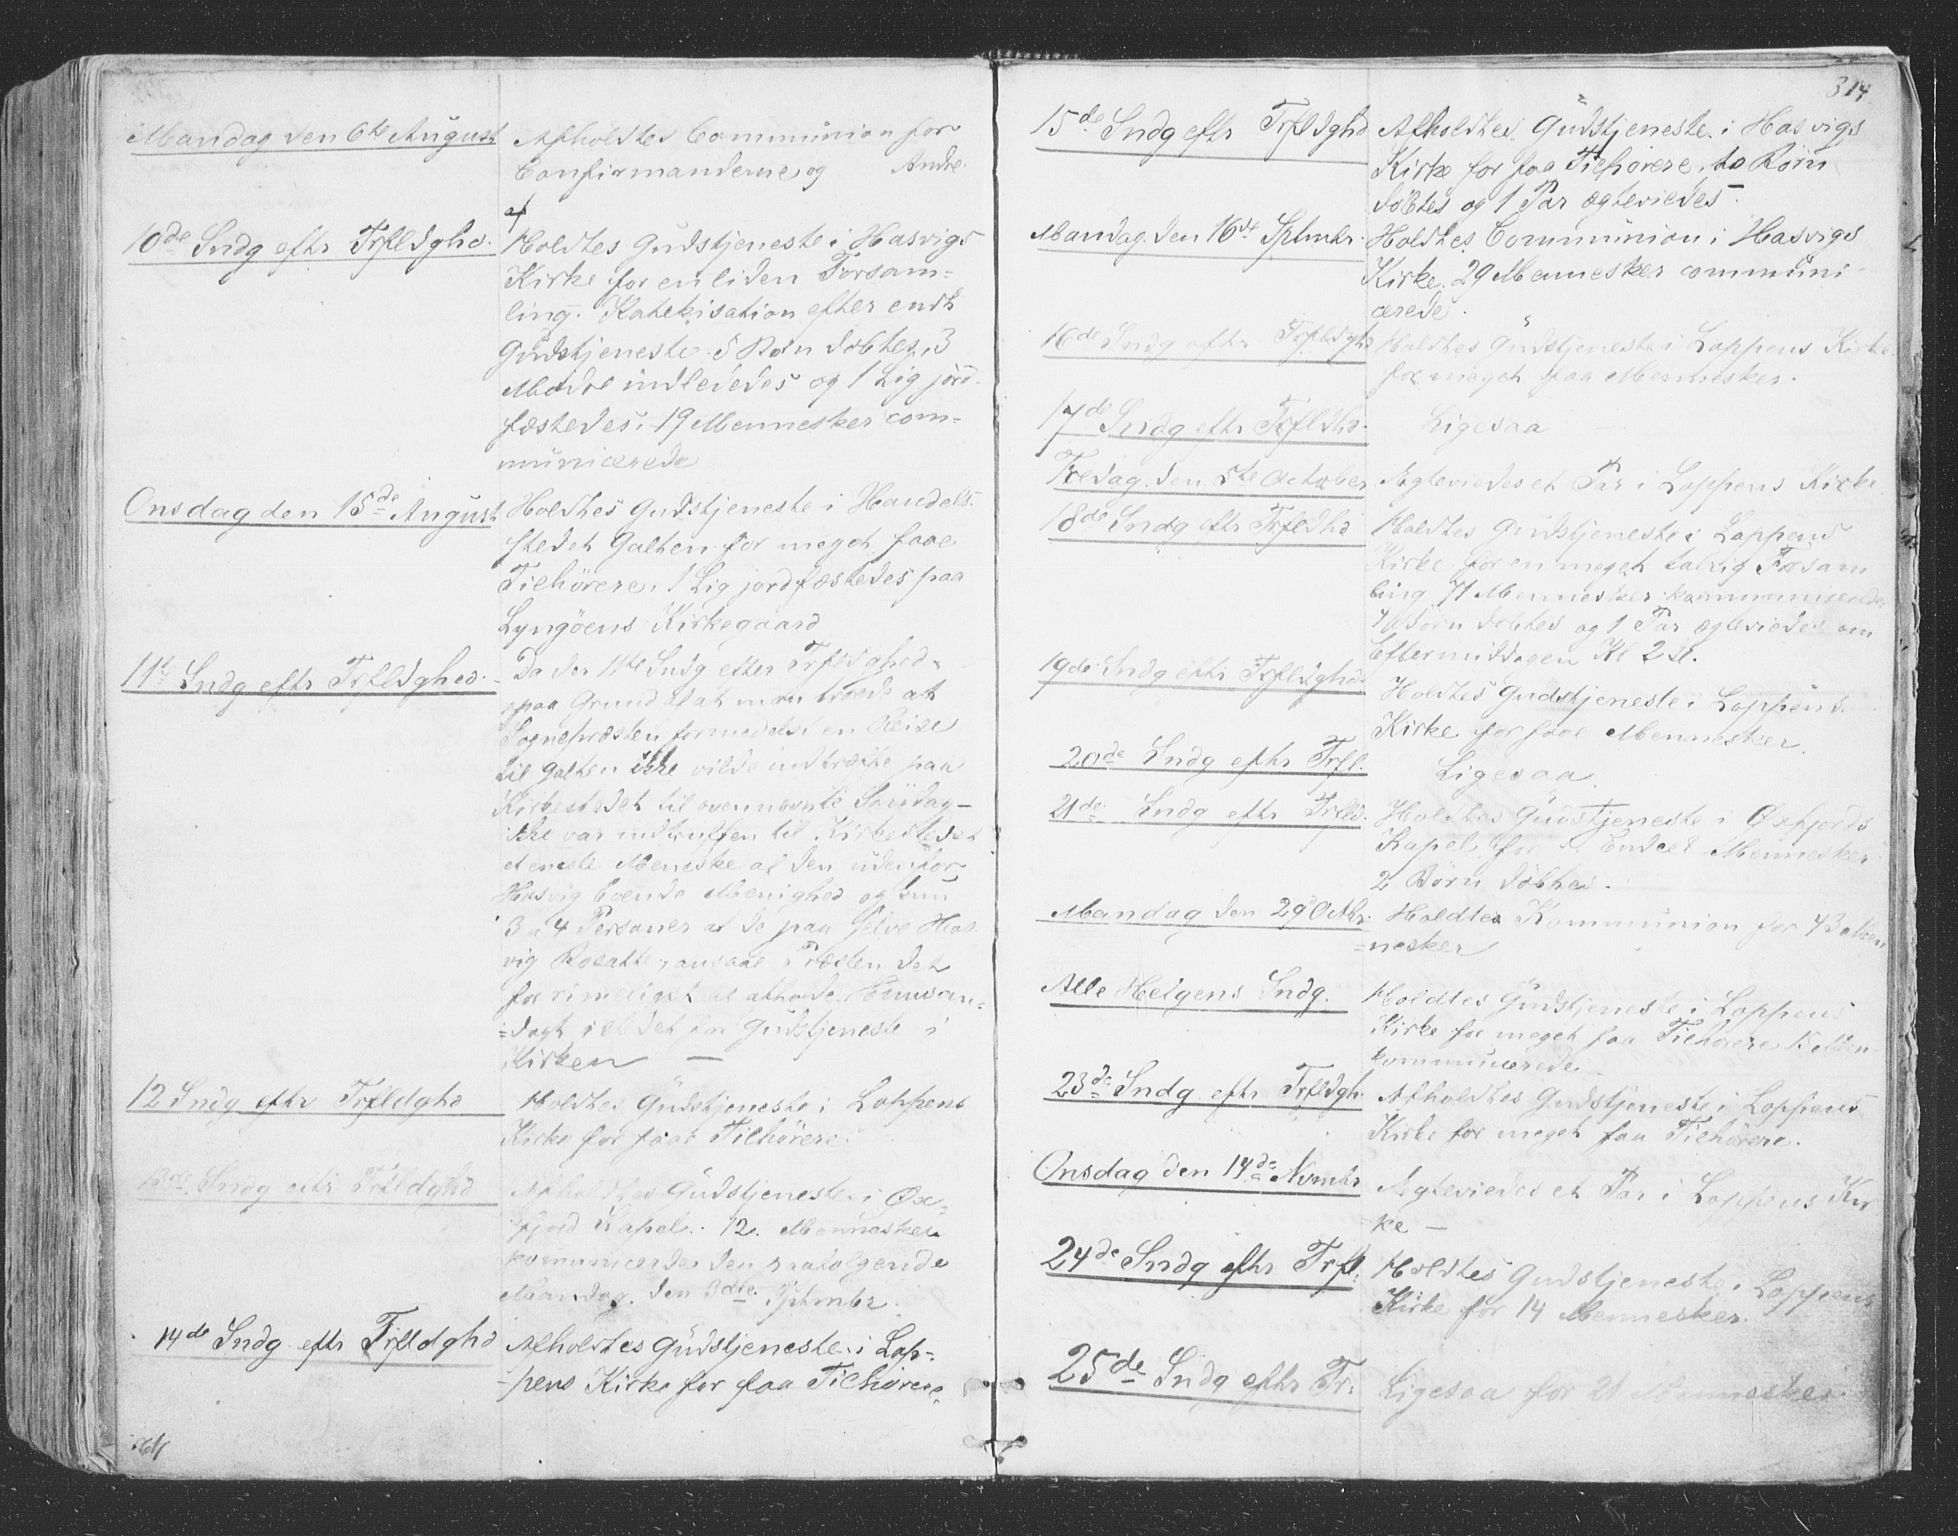 Mandag den 6te August
Afholdtes Communion for
Confirmanderne og Andre.
10de Sndg eftr Trfldghd.
af
Holdtes Gudstjeneste i Hasvigs
Kirke for en liden Forsam=
ling. Katekisation efter endt
Gudstjeneste. 5 Børn døbtes, 3
Mødre indlededes og 1 Lig jord-
fæstedes. 19 Mennesker com=
municerede
Onsdag den 15de August
Holdtes Gudstjeneste i Handels-
stedet Galten for meget faae
Tilhörere. 1 Lig jordfæstedes paa
Lyngöens Kirkegaard
11te Sndg eftr Trfldghed.
Da der 11te Sndg efter Trfldghed=
paa Grund af at man troede at
Sognepræsten formedelst en Reise
til Galten ikke vilde indtræffe paa
Kirkestedet til ovennævnte Søndag –
ikke var indtruffen til Kirkestedet
et eneste Meneske af den udenfor
Hasvig boende Menighed og kun
3 a 4 Personer af de paa selve Has
vig Bosatte, ansaae Præsten det
for rimeligst at afholde Huusan=
=dagt istedet for Gudstjeneste i
Kirken –
12 Sndg eftr Trfldghd
Holdtes Gudstjeneste i Loppens
Kirke for faae Tilhörere.
13de Sndg eftr Trfldghd
Afholdtes Gudstjeneste i Øx=
fjord Kapel. 12 Mennesker
kommunicerede den paafølgende
Mandag den 3die Septmbr.
14de Sndg eftr Trfldghd
Afholdtes Gudstjeneste i Lop=
=pens Kirke for faa Tilhörere.
314
15de Sndg eftr Trfldghd
Afholdtes Gudstjeneste i Hasvigs
Kirke for faa Tilhörere, to Börn
döbtes og 1 Par ægteviedes.
Mandag den 16de Sptmbr.
Holdtes Communion i Hasvigs
Kirke. 29 Mennesker communi-
cerede.
16de Sndg eftr Trfldghd
Holdtes Gudstjeneste i Loppens Kirke
for meget faa Mennesker.
17de Sndg eftr Trfldhd.
Ligesaa
Fredag den 5te October
Ægteviedes et Par i Loppens Kirke
18de Sndg eftr Trfldhd
Holdtes Gudstjeneste i Loppens
Kirke for en meget talrig Forsam
ling 71 Mennesker kommunicerede
4 Börn döbtes og 1 Par ægteviedes om
Eftermiddagen Kl 2 sl.
19de Sndg eftr Trfldghd
Holdtes Gudstjeneste i Loppens
Kirke for faae Mennesker.
20de Sndg eftr Trfl.
Ligesaa
21de Sndg eftr Trfld.
Holdtes Gudstjeneste i Øxfjords
Kapel for Endeel Mennesker
2 Börn döbtes.
Mandag den 29 Octbr.
Holdtes Kommunion for 43 Men
=nesker
Alle Helgens Sndg.
Holdtes Gudstjeneste i Loppens
Kirke for meget faa Tilhörere Men-
kommunicerede
23de Sndg eftr Trfldgh.
Afholdtes Gudstjeneste i Loppens
Kirke for meget faa Tilhörere.
Onsdag den 14de Nvmbr
Ægteviedes et Par i Loppens Kir
ke –
24de Sndg eftr Trfl.
Holdtes Gudstjeneste i Loppens
Kirke for 14 Mennesker.
25de Sndg eftr Tr.
Ligesaa for 21 Mennesker